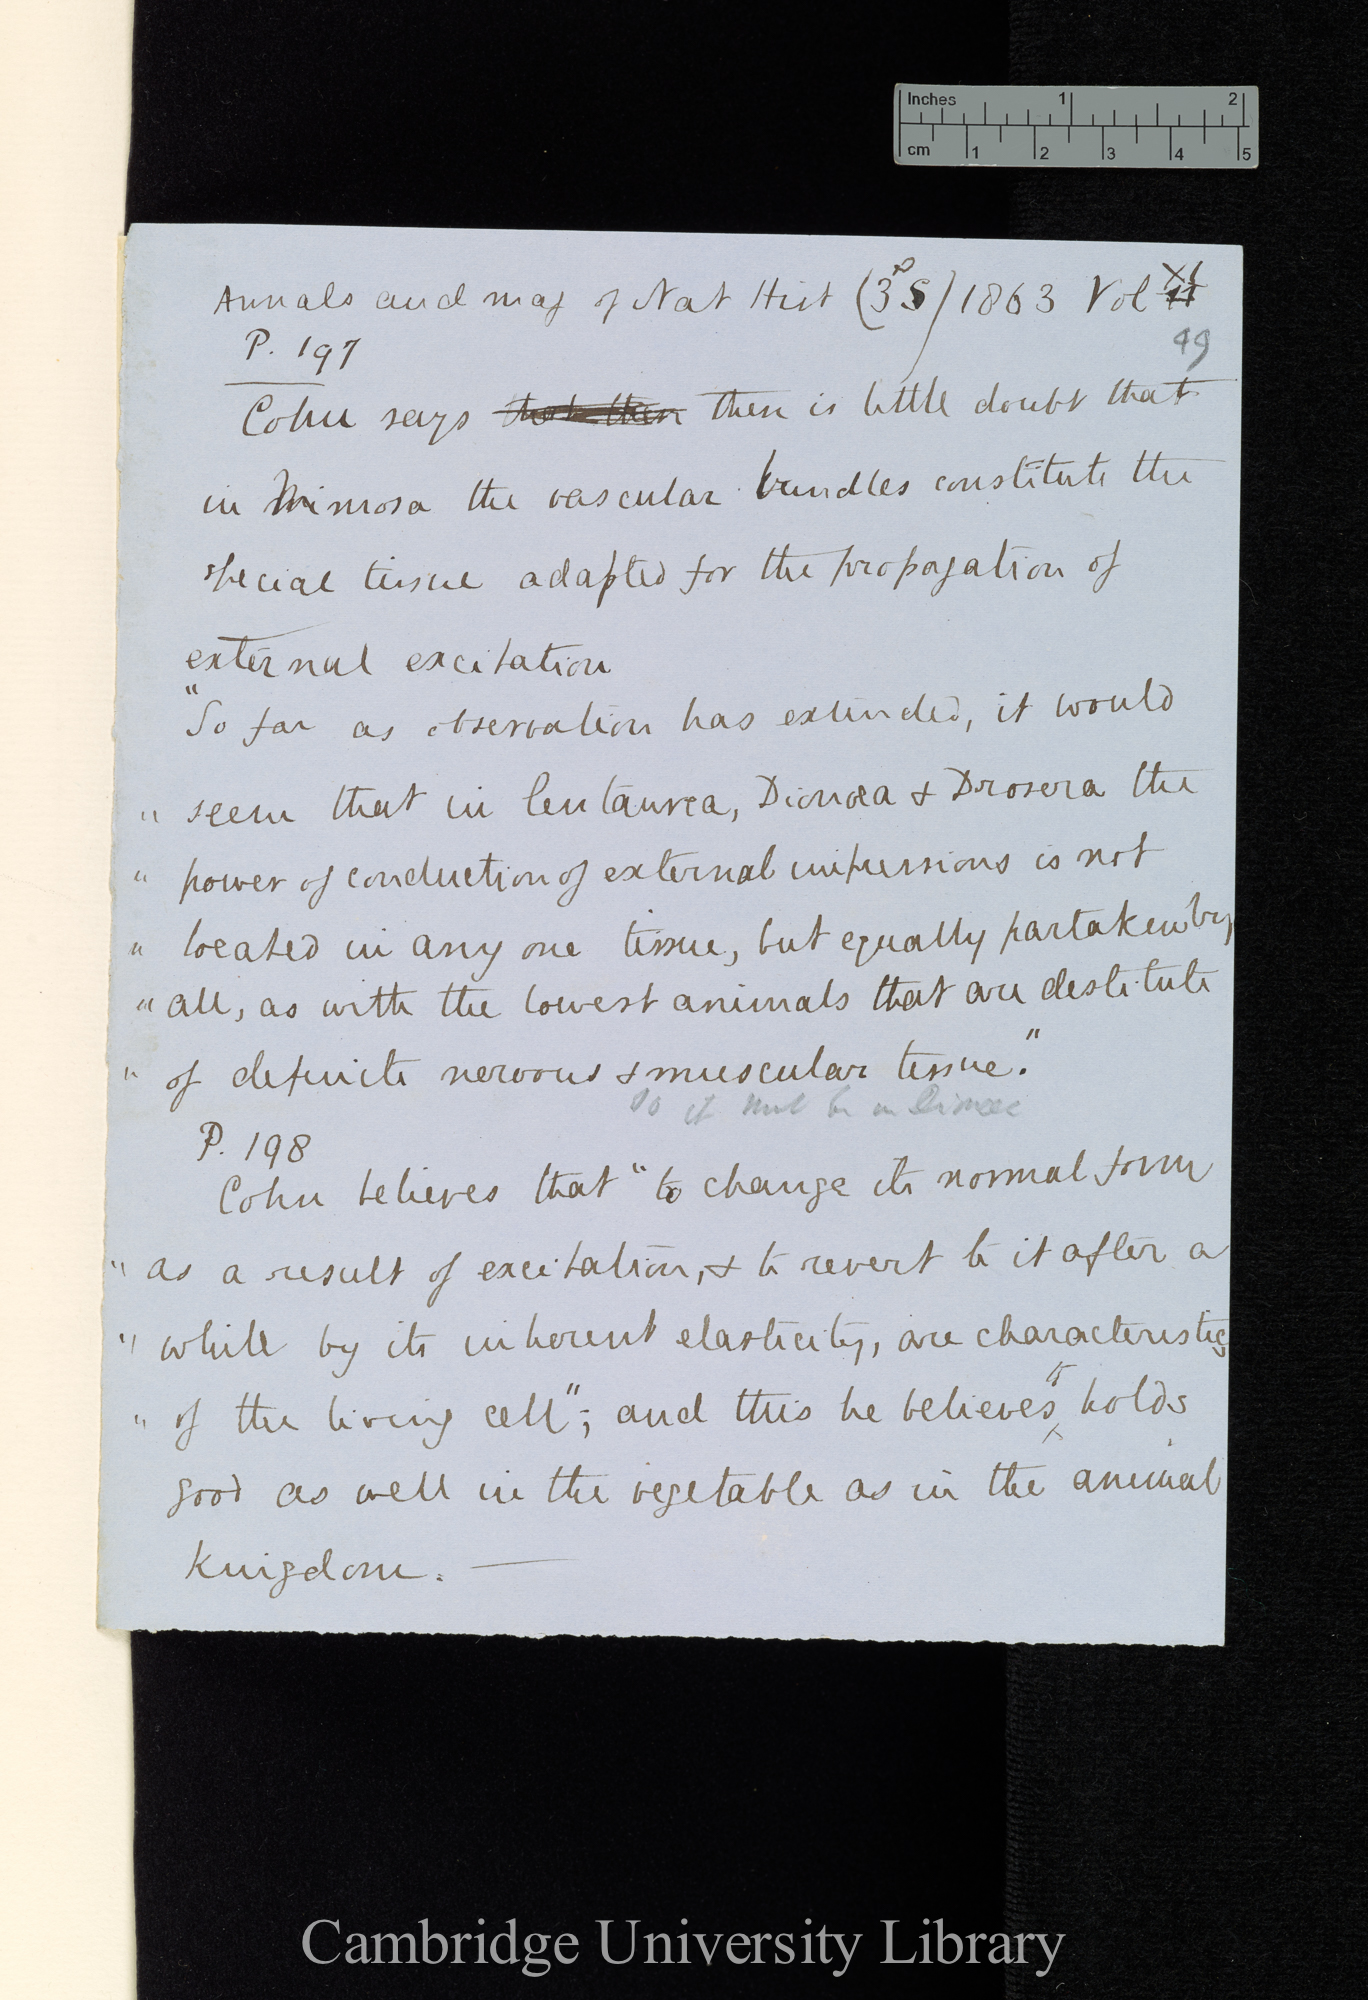 Inches 1 2
cm 1 2 3 4 5
Annals and mag of Nat Hist (3d S) 1863 Vol XI
P. 197
49
Cohn says that there there is little doubt that
in Mimosa the vascular bundles constitute the
special tissue adapted for the propagation of
external excitation
"So far as observation has extended, it would
" seem that in Centaurea, Dionœa & Drosera the
" power of conduction of external impressions is not
" located in any one tissue, but equally partaken by
" all, as with the lowest animals that are destitute
" of definite nervous & muscular tissue."
so it must be in
P. 198
Cohn believes that "to change its normal form
" as a result of excitation, & to revert to it after a
" while by its inherent elasticity, are characteristics
" of the living cell"; and this he believes it holds
good as well in the vegetable as in the animal
Kingdom. —
Cambridge University Library